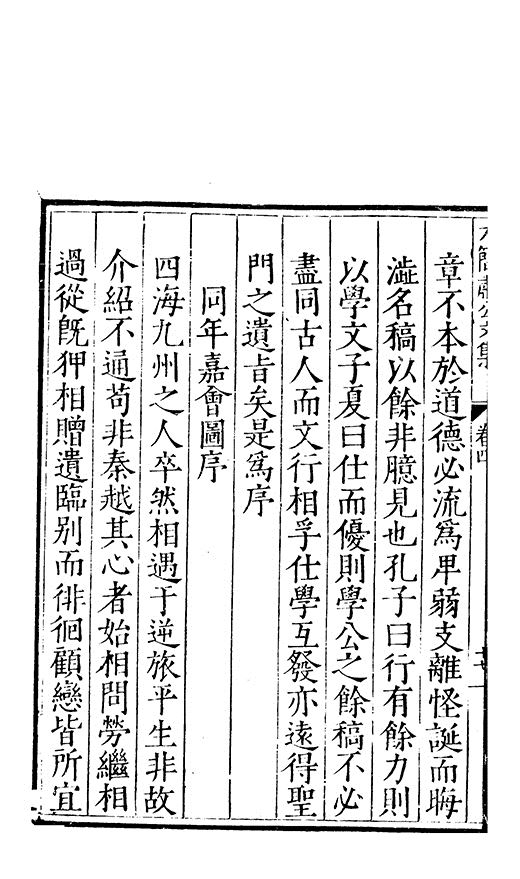 章不本於道德必流爲卑弱支離怪誕而晦
澁名稿以餘非臆見也孔子曰行有餘力則
以學文子夏曰仕而優則學公之餘稿不必
盡同古人而文行相孚仕學互發亦遠得聖
門之遺旨矣是爲序
同年嘉會圖序
四海九州之人卒然相遇于逆旅平生非故
介紹不通苟非秦越其心者始相問勞繼相
過從旣狎相贈遺臨别而徘徊顧戀皆所宜